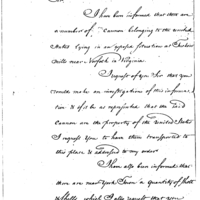 Sir
I have been informed that there are
a number of Cannon belonging to the United
States lying in an exposed situation at
Mills near Norfolk in Virginia.
I request of you Sir that you
would make an investigation of this informa-
tion & if it be as represented that the said
Cannon are the property of the United States
I request you to have them transported to
this place & addressed to my order
I have also been informed that
there are near York Town a quantity of Shott
& Shells which I also request that you